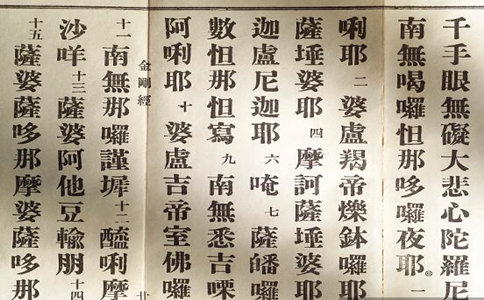 千手眼無礙大悲心陀羅尼
南無喝囉怛那哆囉夜耶一
唎耶二婆盧羯帝爍鉢囉耶
薩埵婆耶四摩訶薩埵婆耶
迦盧尼迦耶六唵七薩皤囉
數怛那怛寫九南無悉吉嘌
阿唎耶十婆盧吉帝室佛囉
金剛經 廿
十一南無那囉謹墀十二醯唎摩
沙咩十三薩婆阿他豆輸朋十四
十五薩婆薩哆那摩婆薩哆那